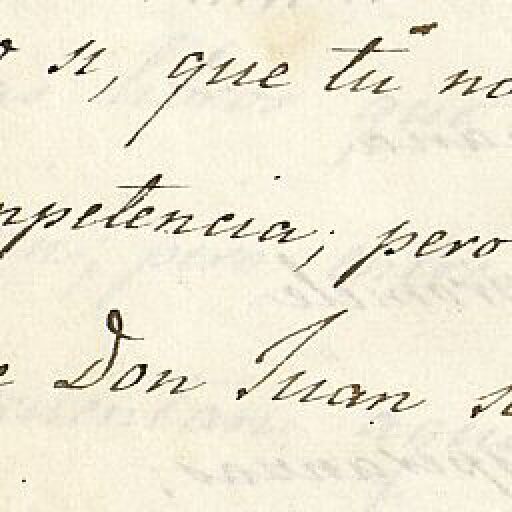 o si, que tú no
mpetencia; pero
e Don Juan s